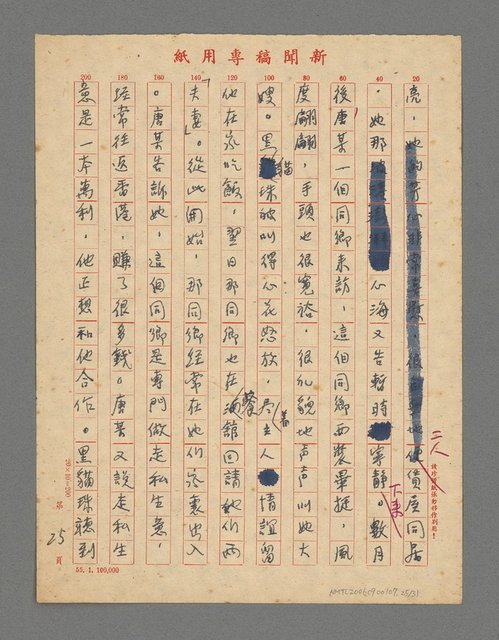 新聞稿專用紙
20 40 60 80 100 120 140 160 180 200
亮，她的
二人
使賃屋同居
。她那
心海又告暫時
寧靜。數月
下来
後，唐某一個同鄉來訪，這個同鄉西裝畢挺，風
度翩翩，手頭也很寬裕，很礼貌地声声叫她大
嫂。黑貓珠被叫得心花怒放，尽主人
着
情誼留
他在家吃飯，翌日那同鄉也在
餐
館回請她们兩
夫妻。從此開始，那同鄉經常在她们家裏出入
。唐某告訴她，這個同鄉是專門做走私生意，
經常往返香港，賺了很多錢。唐某又說走私生
意是一本萬利，他正想和他合作。黑貓珠聽到
20×10=200
第 25 頁
55. 1. 100,000
NMTL20060900107.25/31